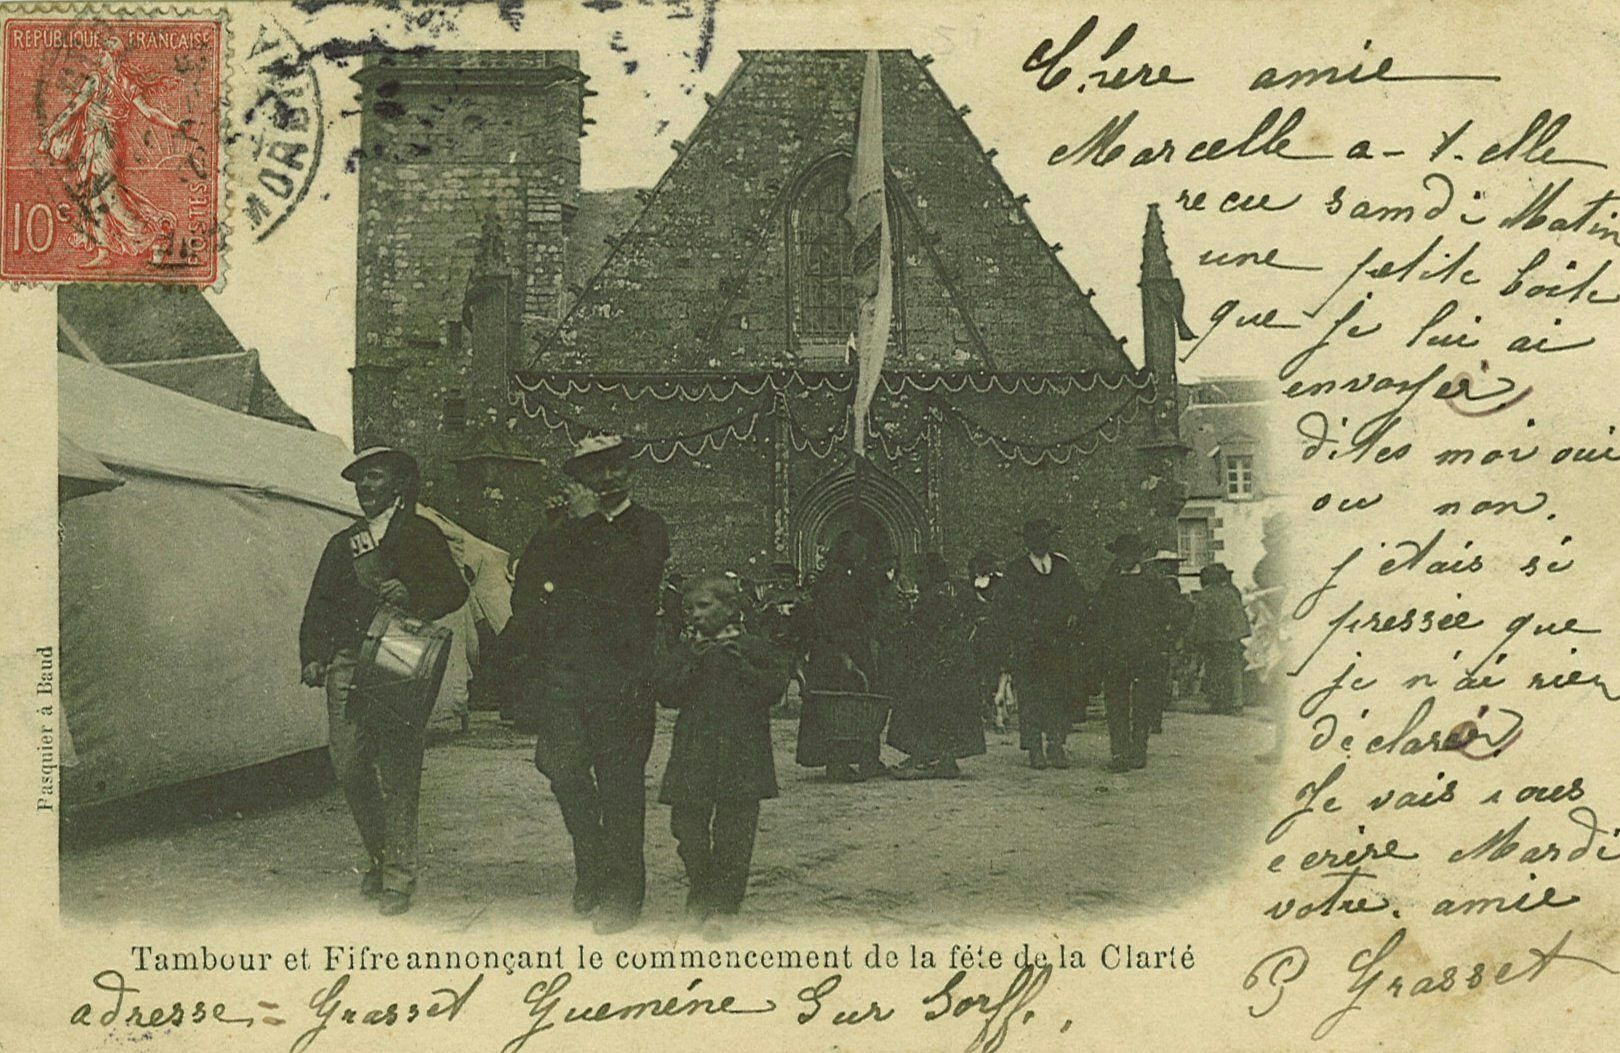 REPUBLIQUE FRANCAISE
10c
POSTES
MORBIHAN
Chère amie
Marcelle a-t-elle
recu samdi Matin
une petite boite
que je lui ai
envoyer
dites moi oui
ou non.
j'etais si
pressée que
je n'ai rien
déclarér
Je vais vous
ecrire Mardi
votre. amie
Grasset
Pasquier à Baud
Tambour et Fifre annonçant le commencement de la fête de la Clarté
adresse = Grasset Gueméne Sur Sorff.